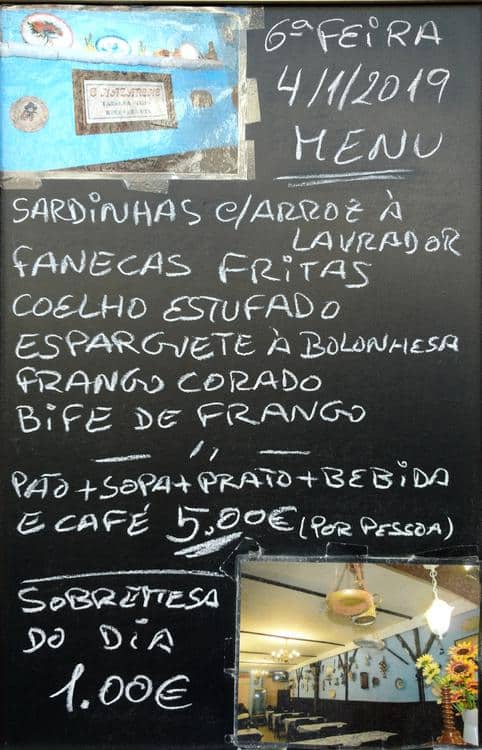 6ª FEIRA
4/1/2019
MENU
O NAZARENO
SARDINHAS C/ARROZ À
LAVRADOR
FANECAS FRITAS
COELHO ESTUFADO
ESPARGUETE À BOLONHESA
FRANGO CORADO
BIFE DE FRANGO
— ,, —
PÃO+SOPA+PRATO+BEBIDA
E CAFÉ 5.00€ (POR PESSOA)
SOBREMESA
DO DIA
1.00€